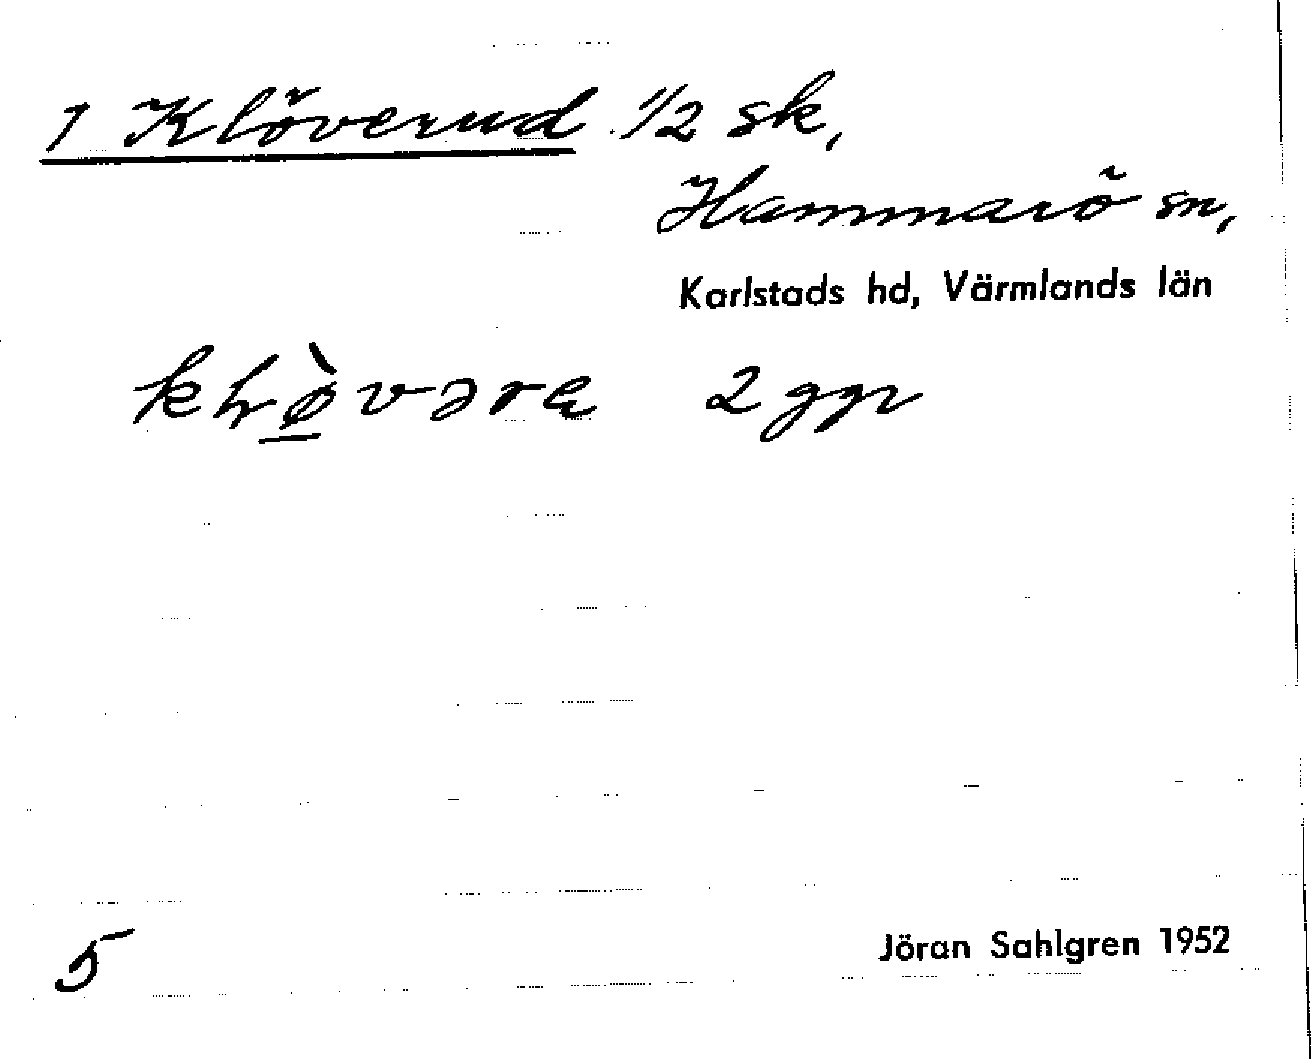 1 Klöverud 1/2 sk,
Hammarö sn,
Karlstads hd, Värmlands län
2 ggr
5
Jöran Sahlgren 1952